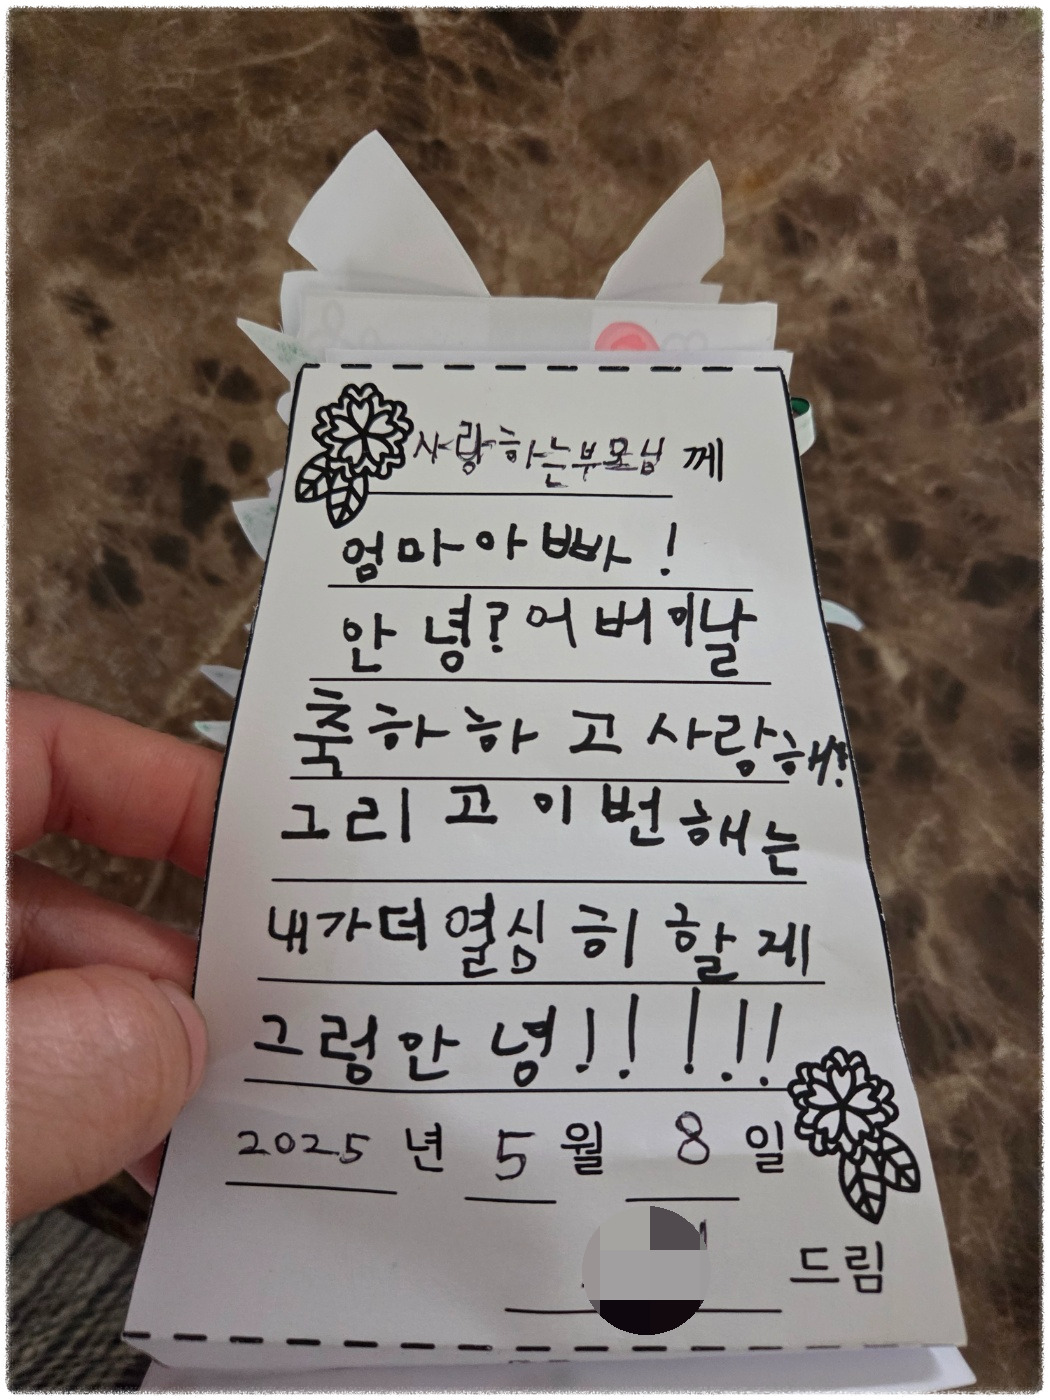 사랑하는부모님 께
엄마아빠!
안녕? 어버이날
축하하고 사랑해!
그리고 이번해는
내가더열심히 할게
그럼안녕!!!!!!
2025 년 5 월 8 일
드림